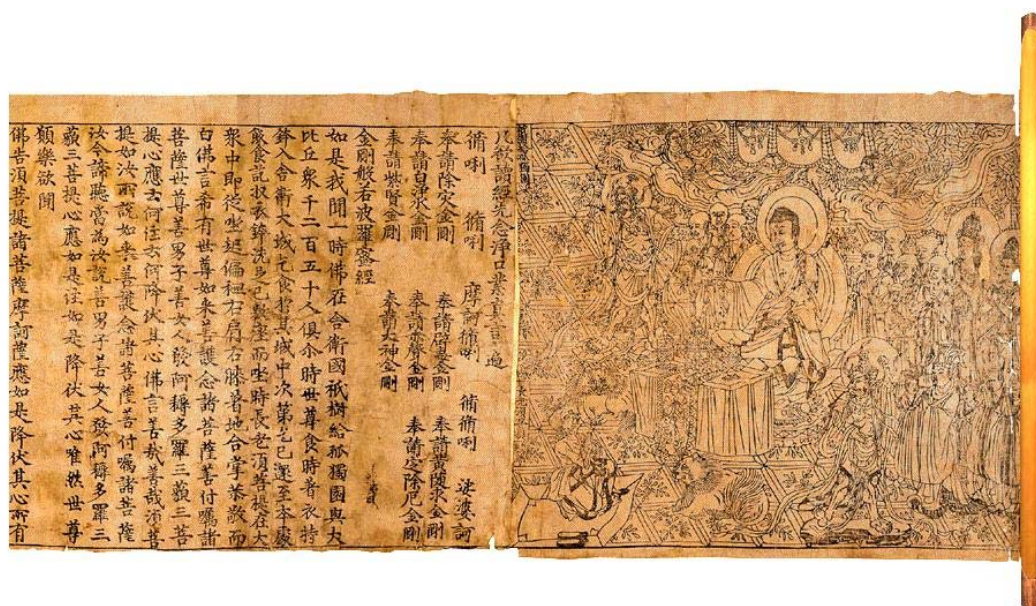 凡欲讀經先念淨口業真言一遍
脩唎 脩唎 摩訶脩唎 脩脩唎 娑婆訶
奉請除灾金剛 奉請辟毒金剛 奉請黃隨求金剛
奉請白淨水金剛 奉請赤聲金剛 奉請定除厄金剛
奉請紫賢金剛 奉請大神金剛
金剛般若波羅蜜經
如是我聞一時佛在舍衛國祇樹給孤獨園與大
比丘衆千二百五十人俱尒時世尊食時著衣持
鉢入舍衛大城乞食於其城中次第乞已還至本處
飯食訖収衣鉢洗足已敷座而坐時長老須菩提在大
衆中即從坐起偏袒右肩右膝著地合掌恭敬而
白佛言希有世尊如來善護念諸菩薩善付囑諸
菩薩世尊善男子善女人發阿耨多羅三藐三菩
提心應云何住云何降伏其心佛言善哉善哉須菩
提如汝所說如來善護念諸菩薩善付囑諸菩薩
汝今諦聽當為汝說善男子善女人發阿耨多羅三
藐三菩提心應如是住如是降伏其心唯然世尊
願樂欲聞
佛告須菩提諸菩薩摩訶薩應如是降伏其心所有